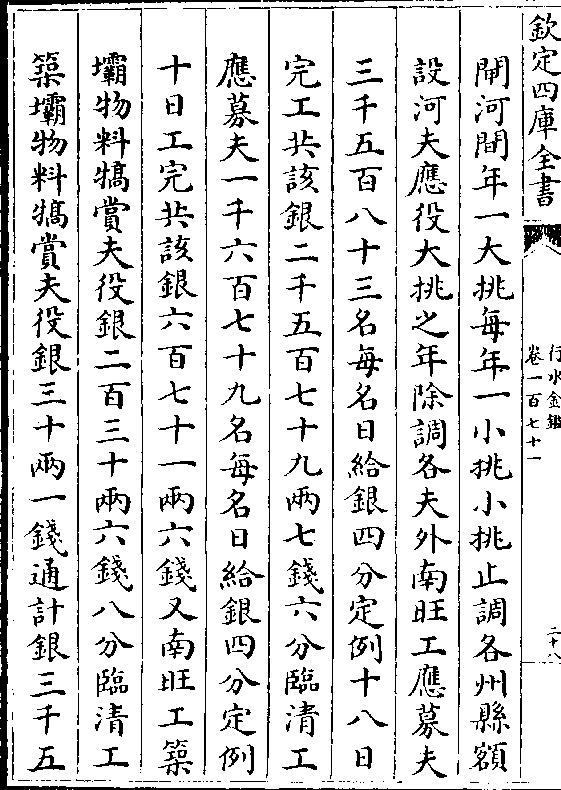 欽定四庫全書
行水金鑑
卷一百七十一
二十八
閘河間年一大挑每年一小挑小挑止調各州縣額
設河夫應役大挑之年除調各夫外南旺工應募夫
三千五百八十三名每名日給銀四分定例十八日
完工共該銀二千五百七十九兩七錢六分臨清工
應募夫一千六百七十九名每名日給銀四分定例
十日工完共該銀六百七十一兩六錢又南旺工築
壩物料犒賞夫役銀二百三十兩六錢八分臨清工
築壩物料犒賞夫役銀三十兩一錢通計銀三千五